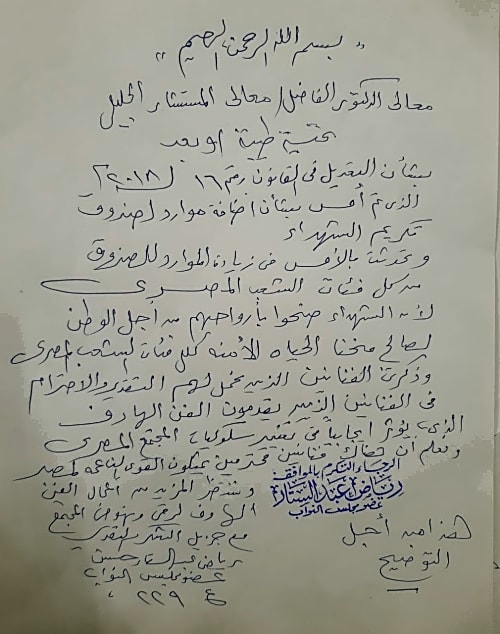 " بسم الله الرحمن الرحيم "
معالى الدكتور الفاضل / معالى المستشار الجليل
تحية طيبة وبعد
بشأن التعديل فى القانون رقم ١٦ لـ ٢٠١٨
الذى تم أمس بشأن اضافة موارد لصندوق
تكريم الشهداء
وتحدثت بالأمس فى زيادة الموارد للصندوق
من كل فئات الشعب المصرى
لأن الشهداء ضحوا بأرواحهم من أجل الوطن
لصالح منحنا الحياه الأمنه لكل فئات الشعب المصرى
وذكرت الفنانين الذين نحمل لهم التقدير والاحترام
فى الفنانين الذين يقدمون الفن الهادف
الذى يؤثر ايجابيا فى تغيير سلوكيات المجتمع المصرى
ونعلم أن هناك فنانين محترمين يمثلون القوى الناعمه لمصر
وننتظر المزيد من اعمال الفن
الهادف لرقى ونهوض المجتمع
مع جزيل الشكر والتقدير
رياض عبد الستار حسن
عضو مجلس النواب
الرجاء التكرم بالموافقة
رياض عبد الستار
عضو مجلس النواب
هذا من أجل
التوضيح